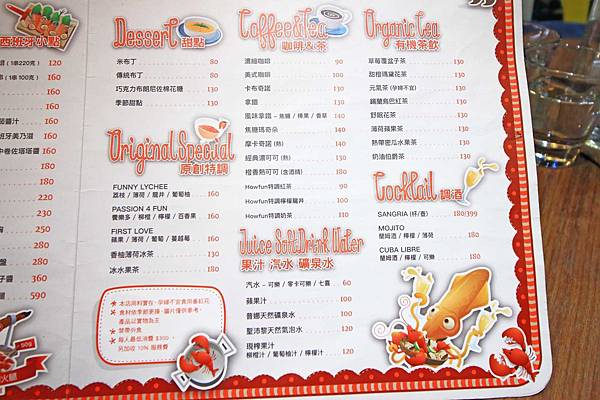 西班牙小點
120
160
160
160
160
160
160
160
360
290
360
590
Dessert 甜點
米布丁 80
傳統布丁 80
巧克力布朗尼佐棉花糖 130
季節甜點 130
Original Special
原創特調
FUNNY LYCHEE
荔枝 / 薄荷 / 龍井 / 葡萄柚 160
PASSION 4 FUN
養樂多 / 柳橙 / 檸檬 / 百香果 160
FIRST LOVE
蘋果 / 薄荷 / 葡萄 / 蔓越莓 160
香柚薄荷冰茶 130
冰水果茶 180
★ 本店用料實在，孕婦不宜食用番紅花
★ 食材依季節更換，圖片僅供參考，
產品以實物為主
★ 禁帶外食
★ 每人最低消費 $300，
另加收 10% 服務費
Coffee&Tea
咖啡&茶
濃縮咖啡 90
美式咖啡 100
卡布奇諾 130
拿鐵 130
風味拿鐵 - 焦糖 / 榛果 / 香草 140
焦糖瑪奇朵 140
摩卡奇諾 (熱) 130
經典濃可可 (熱) 130
橙香熱可可 (含酒精) 180
Howfun特調紅茶 100
Howfun特調檸檬龍井 100
Howfun特調奶茶 110
Juice SoftDrink Water
果汁 汽水 礦泉水
汽水 - 可樂 / 零卡可樂 / 七喜 60
蘋果汁 100
普娜天然礦泉水 100
聖沛黎天然氣泡水 120
現榨果汁
柳橙汁 / 葡萄柚汁 / 檸檬汁 120
Organic Tea
有機茶飲
草莓覆盆子茶 130
甜橙瑪黛花茶 130
元氣茶 (孕婦不宜) 130
錫蘭烏巴紅茶 130
舒眠花茶 130
薄荷蘋果茶 130
熱帶密瓜水果茶 130
奶油伯爵茶 130
Cocktail 調酒
SANGRIA (杯/壺) 180/399
MOJITO
蘭姆酒 / 檸檬 / 薄荷 180
CUBA LIBRE
蘭姆酒 / 檸檬 / 可樂 180